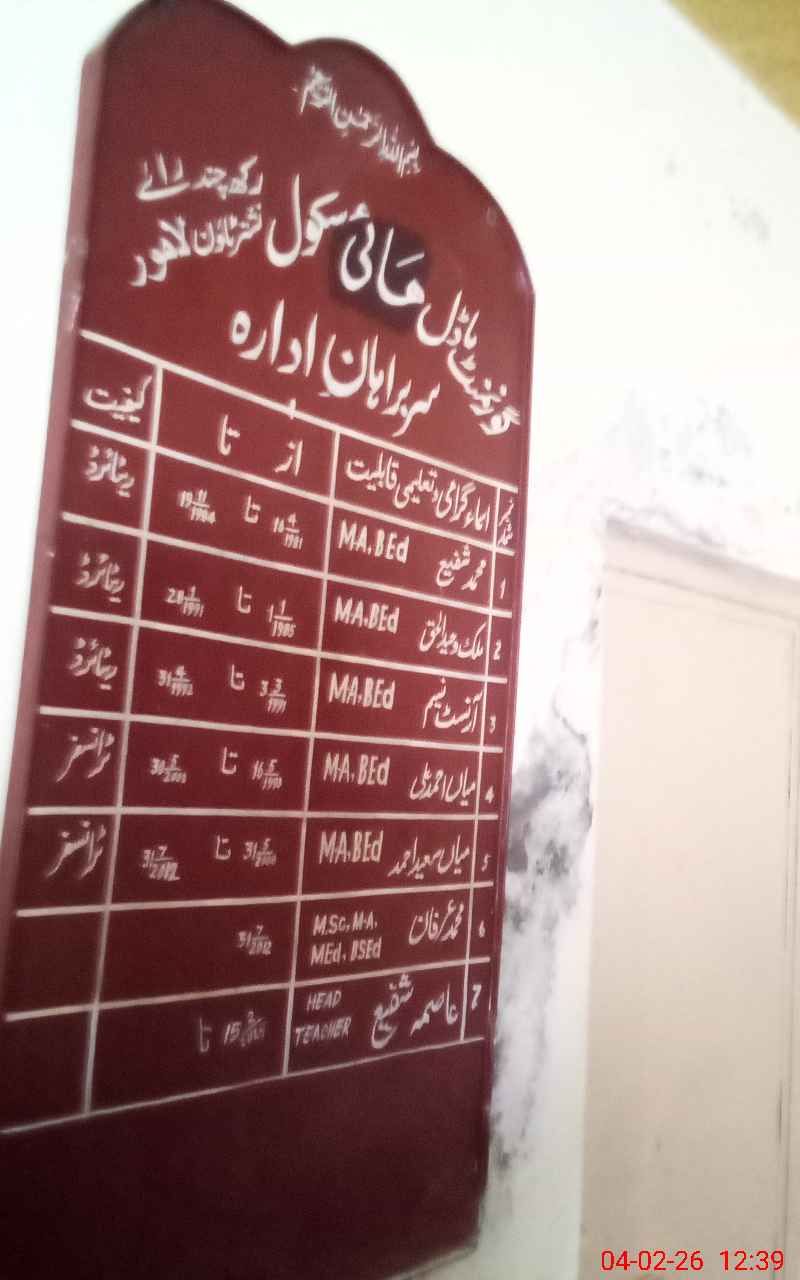 بسم اللہ الرحمٰن الرحیم
گورنمنٹ ماڈل ہائی سکول رکھ چند رائے نشتر ٹاؤن لاہور
سربراہانِ ادارہ
نمبر شمار اسماء گرامی و تعلیمی قابلیت از تا کیفیت
1 محمد شفیع MA.BEd 16 4/1981 تا 19 11/1984 ریٹائرڈ
2 ملک وحیدالحق MA.BEd 1 1/1985 تا 28 1/1991 ریٹائرڈ
3 آرنسٹ نسیم MA.BEd 3 3/1991 تا 31 4/1993 ریٹائرڈ
4 میاں احمد علی MA.BEd 16 5/1993 تا 30 5/2000 ٹرانسفر
5 میاں سعید احمد MA.BEd 31 5/2000 تا 31 7/2012 ٹرانسفر
6 محمد عرفان M.Sc, M.A, MEd, BSEd 31 7/2012
7 عاصمہ شفیع HEAD TEACHER 15 تا
04-02-26 12:39